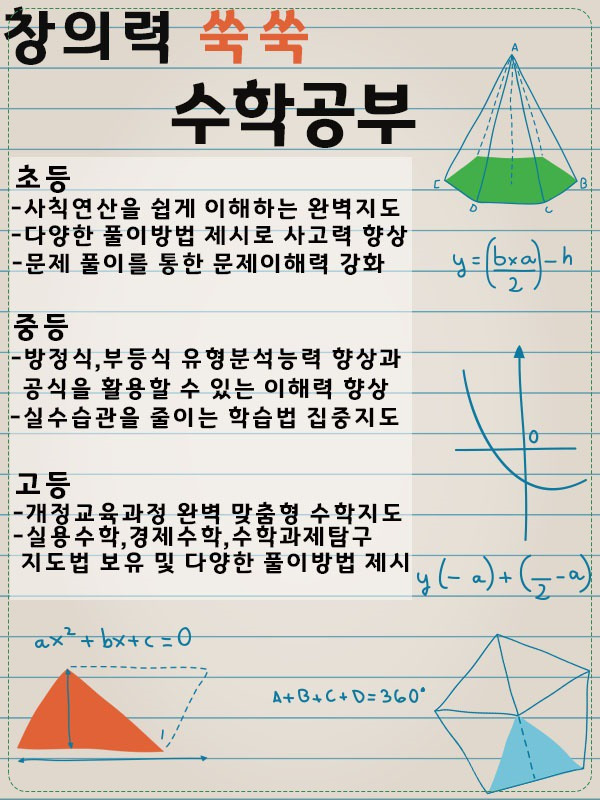 창의력 쑥쑥
수학공부
초등
-사칙연산을 쉽게 이해하는 완벽지도
-다양한 풀이방법 제시로 사고력 향상
-문제 풀이를 통한 문제이해력 강화
중등
-방정식,부등식 유형분석능력 향상과
공식을 활용할 수 있는 이해력 향상
-실수습관을 줄이는 학습법 집중지도
고등
-개정교육과정 완벽 맞춤형 수학지도
-실용수학,경제수학,수학과제탐구
지도법 보유 및 다양한 풀이방법 제시
A
E
B
D
C
y=(bxa/2)-h
0
y(- a)+(_/2-a)
ax²+bx+c=0
A+B+C+D=360°